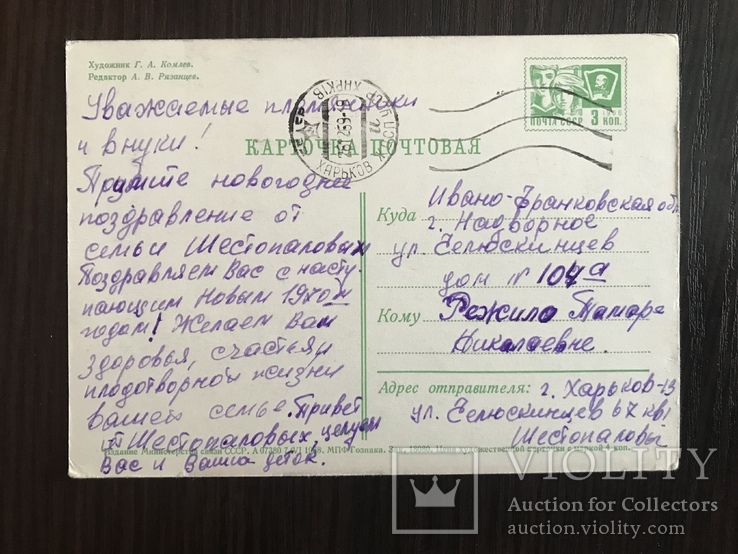 Художник Г. А. Комлев.
Редактор А. В. Рязанцев.
Уважаемые племянники
и внуки!
Примите новогоднее
поздравление от
семьи Шестопаловых
Поздравляем Вас с насту
пающим Новым 1970м
годом! Желаем Вам
здоровья, счастья и
плодотворной жизни
вашей семье. Привет
от Шестопаловых, целуем
Вас и Ваших деток.
КАРТОЧКА ПОЧТОВАЯ
ХАРЬКОВ
ХАРКІВ
ПОЧТА СССР 3 КОП.
1966
Куда Ивано-Франковская обл
г. Надворное
ул. Челюскинцев
дом № 104а
Кому Режило Тамаре
Николаевне.
Адрес отправителя: г. Харьков-13
ул. Челюскинцев 67 кв1
Шестопаловы
Издание Министерства связи СССР. МПФ Гознака. Цена художественной карточки с маркой 4 коп.
VIOLITY
Auction for Collectors
auction.violity.com